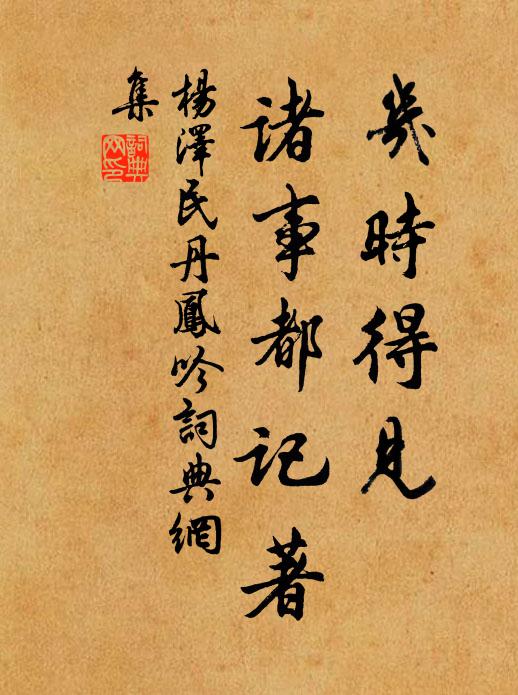 幾時得見
諸事都記著
楊澤民丹鳳吟詞典網
集
詞典網印